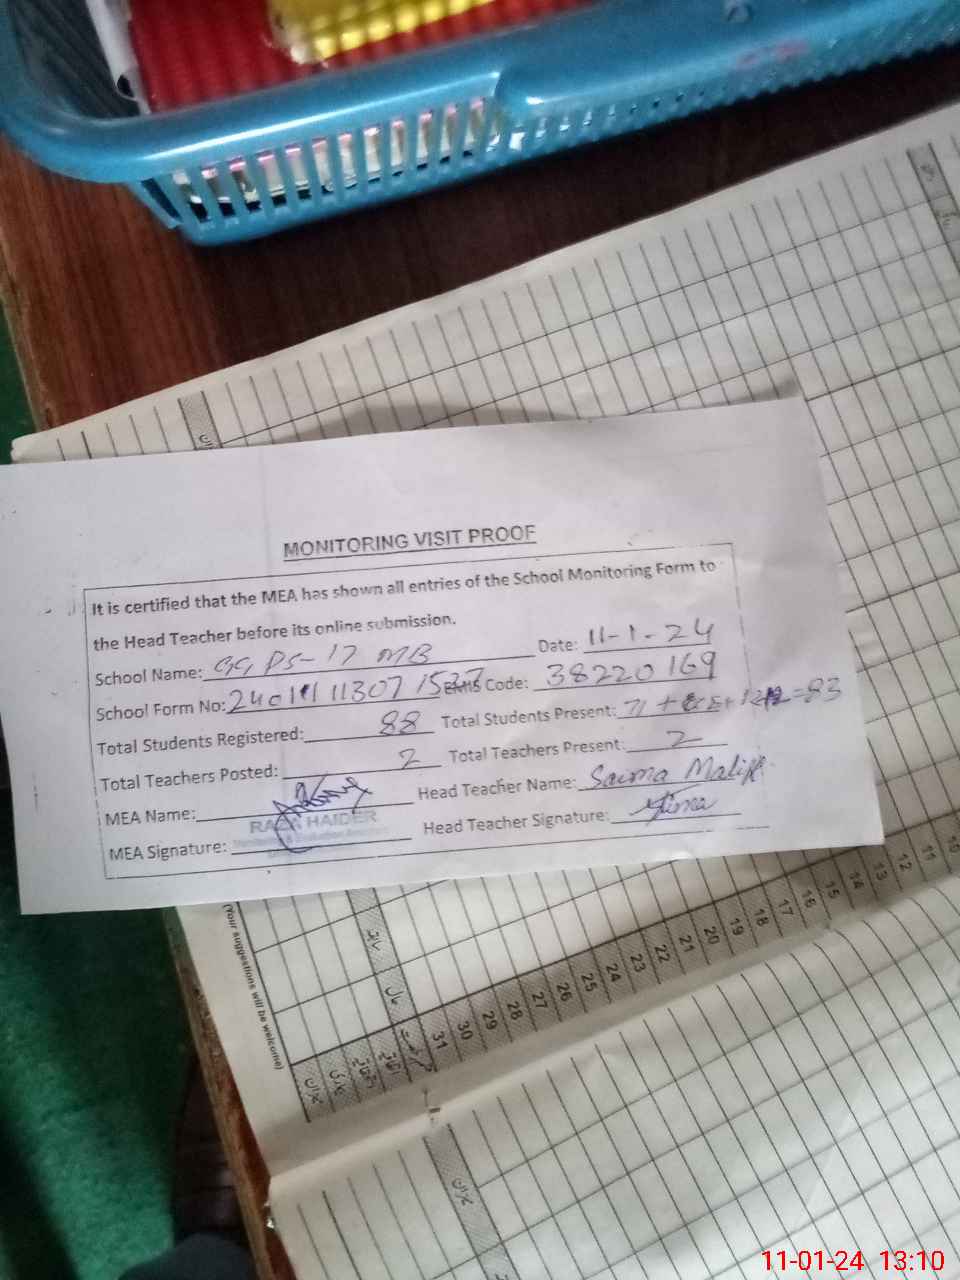 MONITORING VISIT PROOF
It is certified that the MEA has shown all entries of the School Monitoring Form to
the Head Teacher before its online submission.
School Name: GGPS-17 MB Date: 11-1-24
School Form No: Code: 38220169
Total Students Registered: 88 Total Students Present: 71 + =83
Total Teachers Posted: 2 Total Teachers Present: 2
MEA Name: Head Teacher Name: Saima Malik
RAZA HAIDER
MEA Signature: Head Teacher Signature: Saima
(Your suggestions will be welcome)
31 30 29 28 27 26 25 24 23 22 21 20 19 18 17 16 15 14 13 12 11 10
میزان
11-01-24 13:10